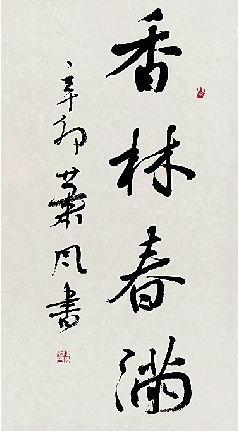 香林春满
辛卯叶风书